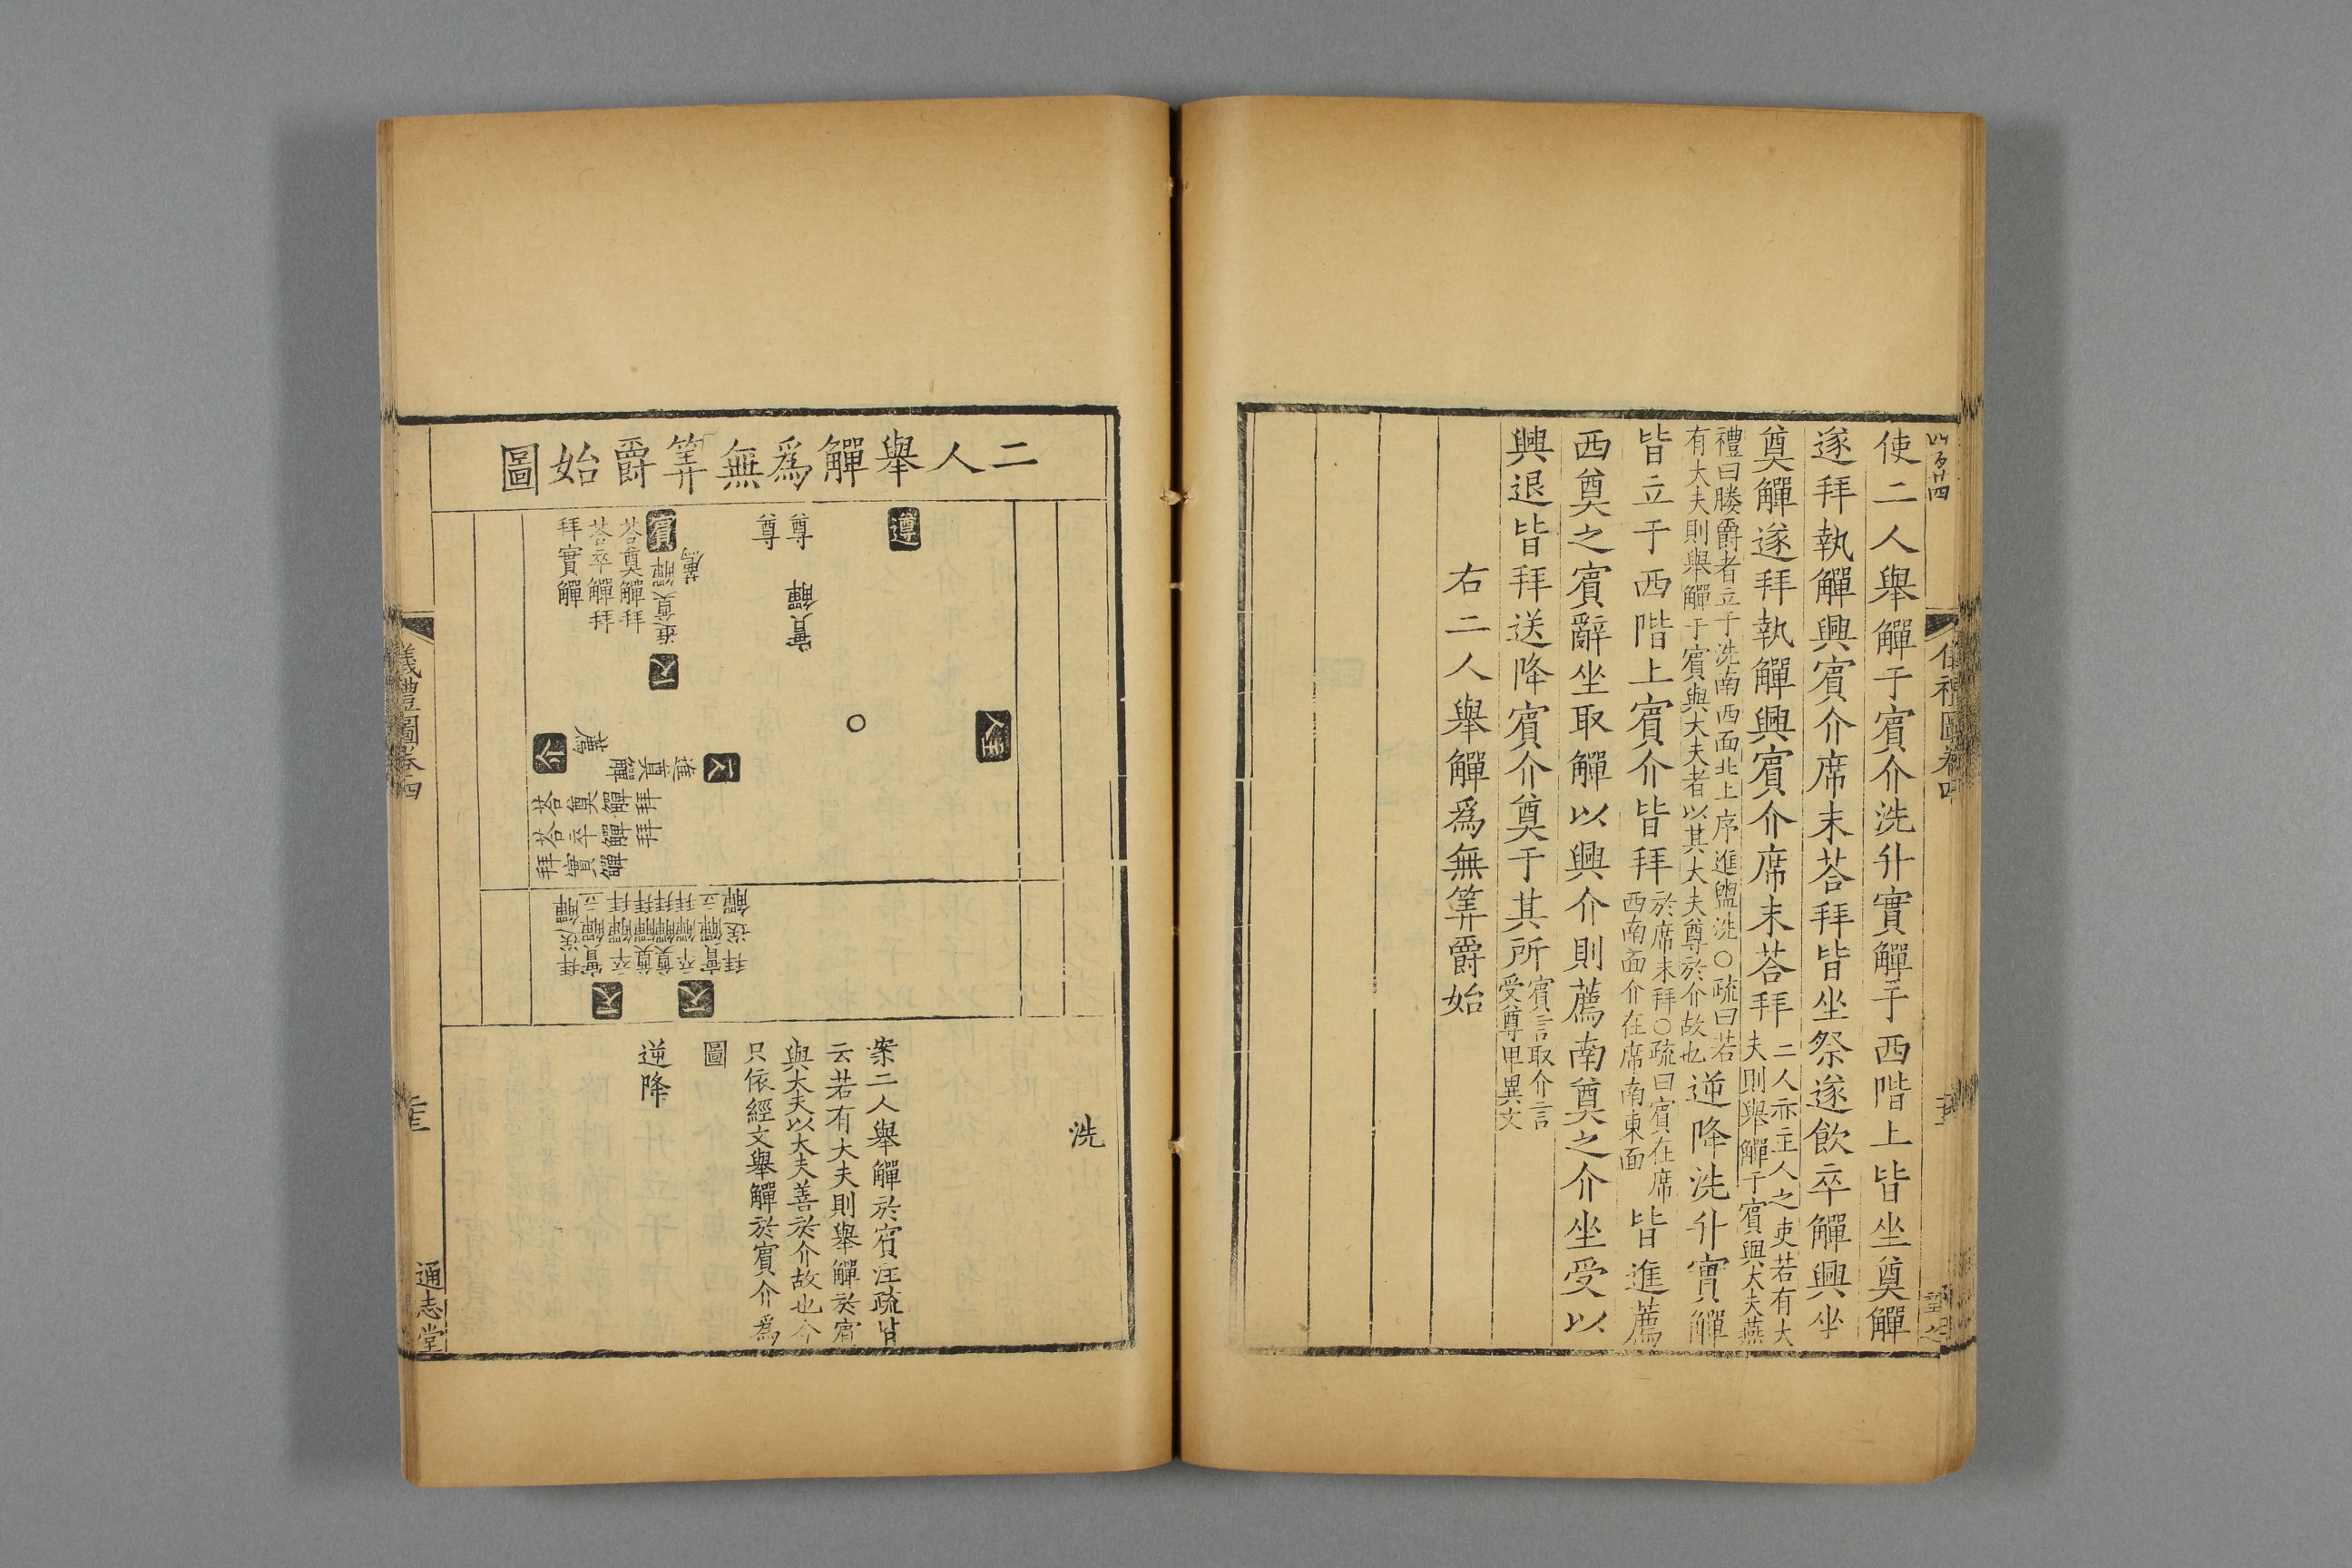 使二人舉觶于賓介洗升實觶于西階上皆坐奠觶
遂拜執觶興賓介席末荅拜皆坐祭遂飲卒觶興坐
奠觶遂拜執觶興賓介席末荅拜
二人亦主人之吏若有大
夫則舉觶于賓與大夫燕
禮曰媵爵者立于洗南西面北上序進盥洗○疏曰若
有大夫則舉觶于賓與大夫者以其大夫尊於介故也
逆降洗升實觶
皆立于西階上賓介皆拜
於席末拜○疏曰賓在席
西南面介在席南東面
皆進薦
西奠之賓辭坐取觶以興介則薦南奠之介坐受以
興退皆拜送降賓介奠于其所
賓言取介言
受尊卑異文
右二人舉觶爲無筭爵始
儀禮圖卷四
二人舉觶爲無筭爵始圖
遵
尊
尊
實觶
賓
薦
進奠觶
荅奠觶拜
荅卒觶拜
拜實觶
一人
主人
介
薦
進奠觶
一人
荅奠觶拜
荅卒觶拜
拜實觶
拜送觶
實觶立
卒觶拜
奠觶拜
奠觶拜
卒觶拜
實觶立
拜送觶
一人
一人
洗
案二人舉觶於賓注疏皆
云若有大夫則舉觶於賓
與大夫以大夫善於介故也今
只依經文舉觶於賓介爲
圖
逆降
儀禮圖卷四
通志堂